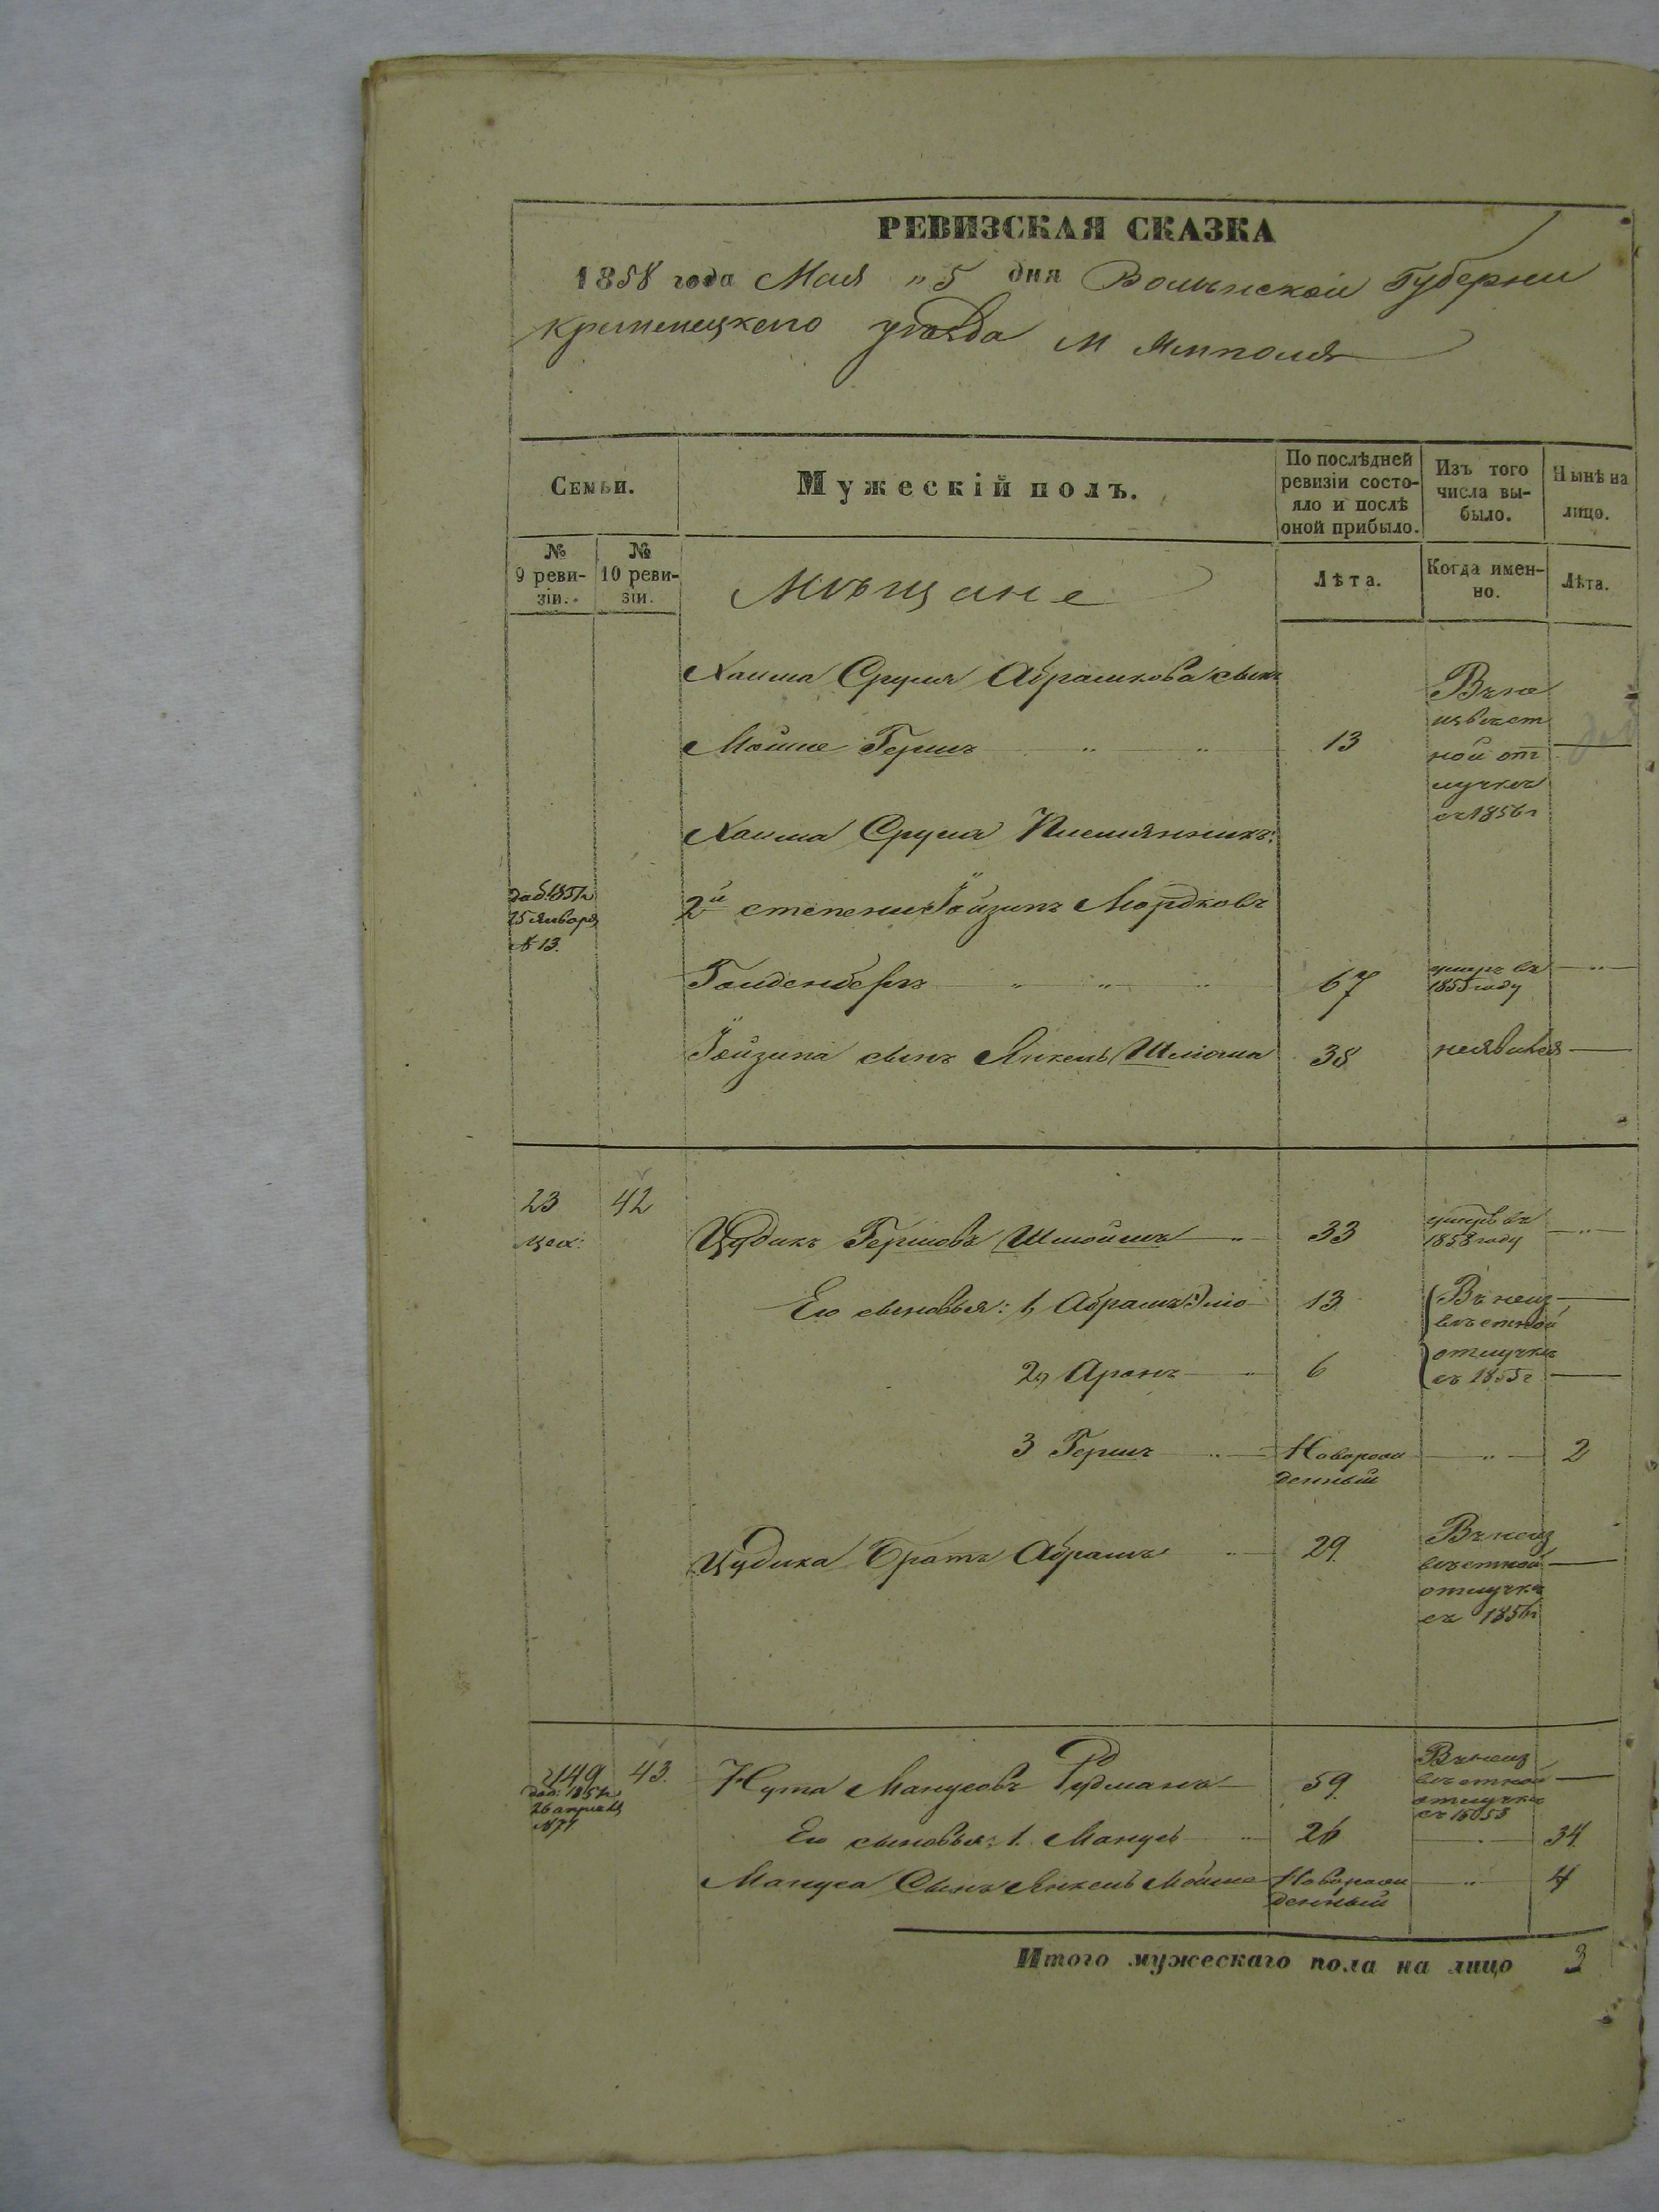 РЕВИЗСКАЯ СКАЗКА
1858 года Мая „5 дня Волынской Губернии
Кременецкого уѣзда м Ямполя
Семьи.
Мужескій полъ.
По послѣдней ревизіи состо-
яло и послѣ
оной прибыло.
Изъ того
числа вы-
было.
Нынѣ на
лицо.
№
9 реви-
зіи.
№
10 реви-
зіи.
Мѣщане
Лѣта.
Когда имен-
но.
Лѣта.
Хаима Сруля Абрашкова сынъ
Мойше Гершъ 13
Въ не
извѣст
ной от
лучкѣ
съ 1856 г
Хаима Сруля Племянникъ:
доб: 1851 г
25 Января
№ 13.
2й степени Іойзипъ Мордковъ
Голденберъ 67 умеръ въ
1855 году
Іойзипа сынъ Янкель Шлiома 38 неявился
23 42
цех:
Цудикъ Гершовъ Шмойшъ 33 умеръ въ
1858 году
Его сыновья: 1, Абрамъ Элiо 13
2, Аронъ 6
Въ неиз
вѣстной
отлучкѣ
съ 1855 г
3 Гершъ Новорож
денный 2
Цудика братъ Абрамъ 29.
Въ неиз
вѣстной
отлучкѣ
съ 1856 г
149 43.
доб: 1851 г
26 апреля
№ 71
Нута Манусовъ Рудманъ 59.
Въ неиз
вѣстной
отлучкѣ
съ 1853
Его сыновья: 1. Манусъ 26 34
Мануса Сынъ Янкель Мойше Новорож
денный 4
Итого мужескаго пола на лицо 3